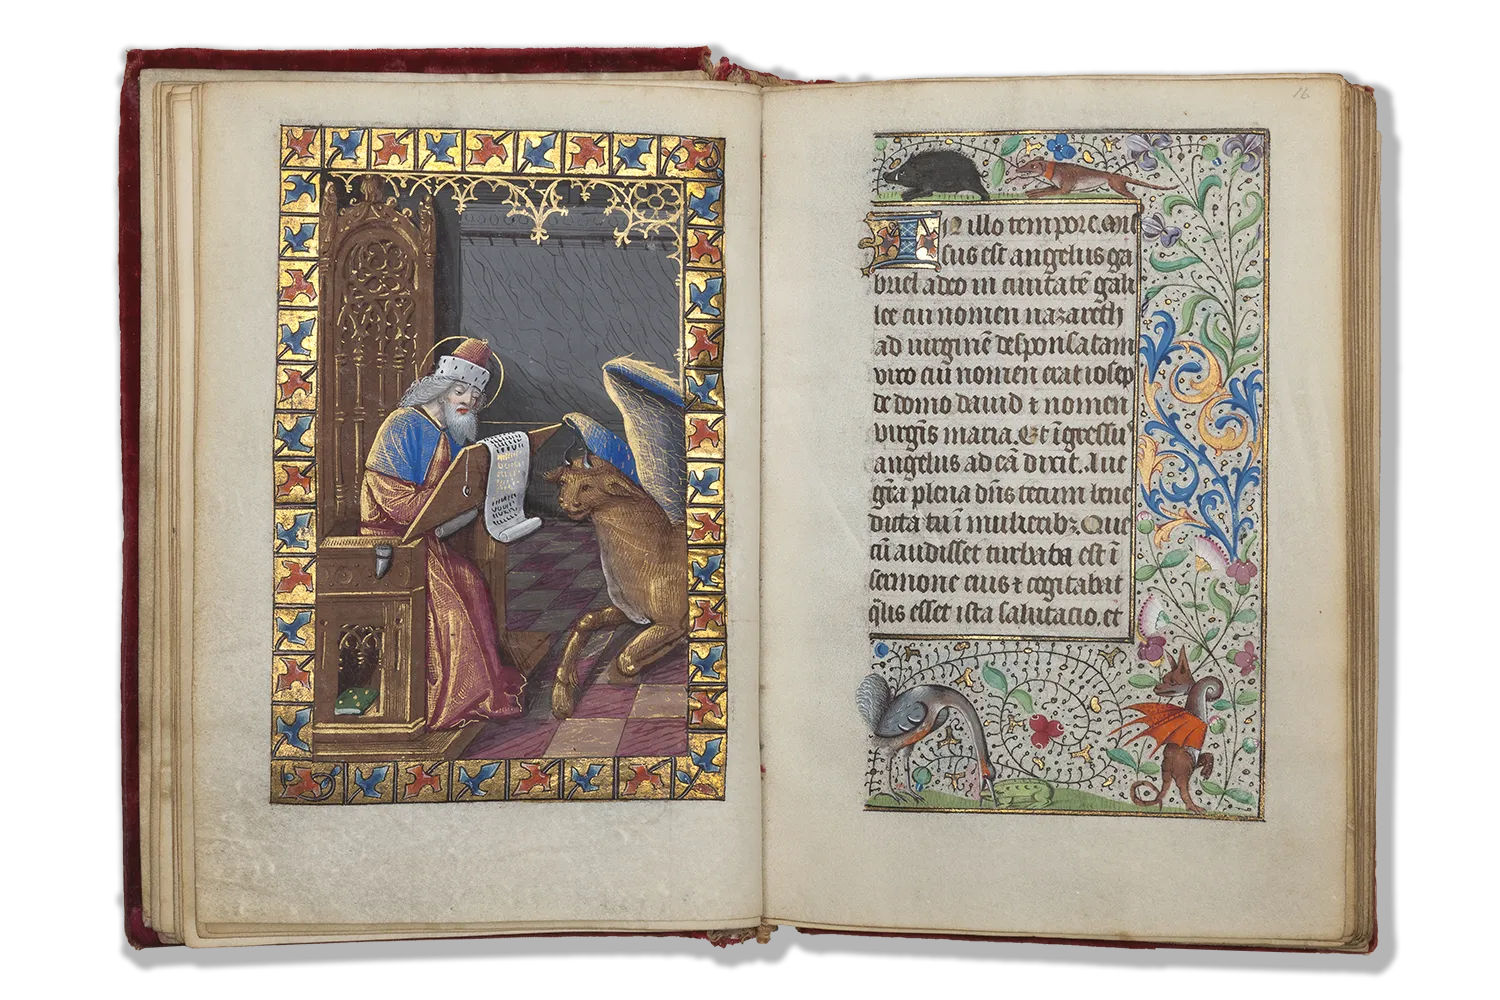 16
In illo tempore. mis
sus est angelus ga
briel a deo in ciuitatē gali
lee cui nomen nazareth
ad uirginē desponsatam
viro cui nomen erat iosep
de domo dauid ⁊ nomen
virgīs maria. Et īgressus
angelus ad eā dixit. Aue
grā plena dn̄s tecum bene
dicta tu ī mulieribꝫ Que
cū audisset turbata est ī
sermone eius ⁊ cogitabat
qlis esset ista salutacio. et